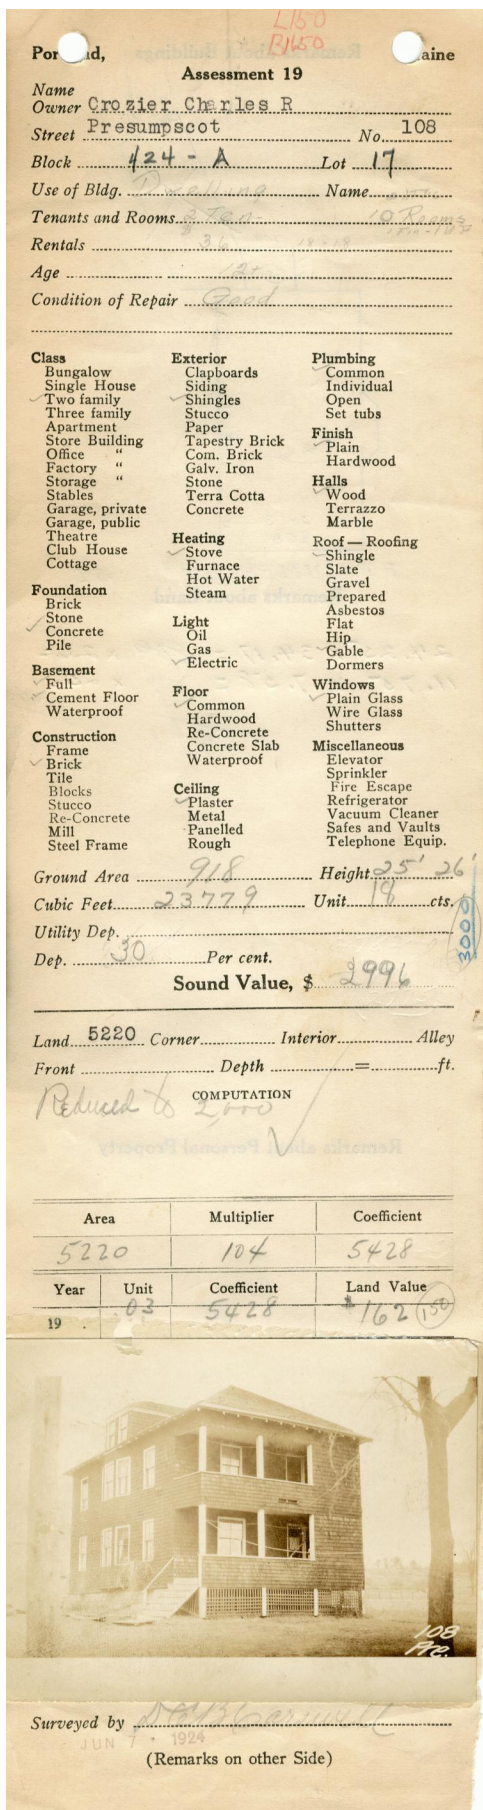 L150
B1650
Por nd, aine
Assessment 19
Name
Owner Crozier Charles R
Street Presumpscot No. 108
Block 424 - A Lot 17
Use of Bldg. Dwelling Name
Tenants and Rooms 2 Ten- 10 Rooms
Rentals 36 18-18
Age 12
Condition of Repair Good
Class
Bungalow
Single House
Two family
Three family
Apartment
Store Building
Office "
Factory "
Storage "
Stables
Garage, private
Garage, public
Theatre
Club House
Cottage
Foundation
Brick
Stone
Concrete
Pile
Basement
Full
Cement Floor
Waterproof
Construction
Frame
Brick
Tile
Blocks
Stucco
Re-Concrete
Mill
Steel Frame
Exterior
Clapboards
Siding
Shingles
Stucco
Paper
Tapestry Brick
Com. Brick
Galv. Iron
Stone
Terra Cotta
Concrete
Heating
Stove
Furnace
Hot Water
Steam
Light
Oil
Gas
Electric
Floor
Common
Hardwood
Re-Concrete
Concrete Slab
Waterproof
Ceiling
Plaster
Metal
Panelled
Rough
Plumbing
Common
Individual
Open
Set tubs
Finish
Plain
Hardwood
Halls
Wood
Terrazzo
Marble
Roof — Roofing
Shingle
Slate
Gravel
Prepared
Asbestos
Flat
Hip
Gable
Dormers
Windows
Plain Glass
Wire Glass
Shutters
Miscellaneous
Elevator
Sprinkler
Fire Escape
Refrigerator
Vacuum Cleaner
Safes and Vaults
Telephone Equip.
Ground Area 918 Height 25' 26'
Cubic Feet 23779 Unit 18 cts.
Utility Dep.
Dep. 30 Per cent.
3000
Sound Value, $ 2996
Land 5220 Corner Interior Alley
Front Depth = ft.
COMPUTATION
Reduced to 2,000
Area Multiplier Coefficient
5220 104 5428
Year Unit Coefficient Land Value
19 . .03 5428 $162 150
108
Pre.
Surveyed by
JUN 7 · 1924
(Remarks on other Side)